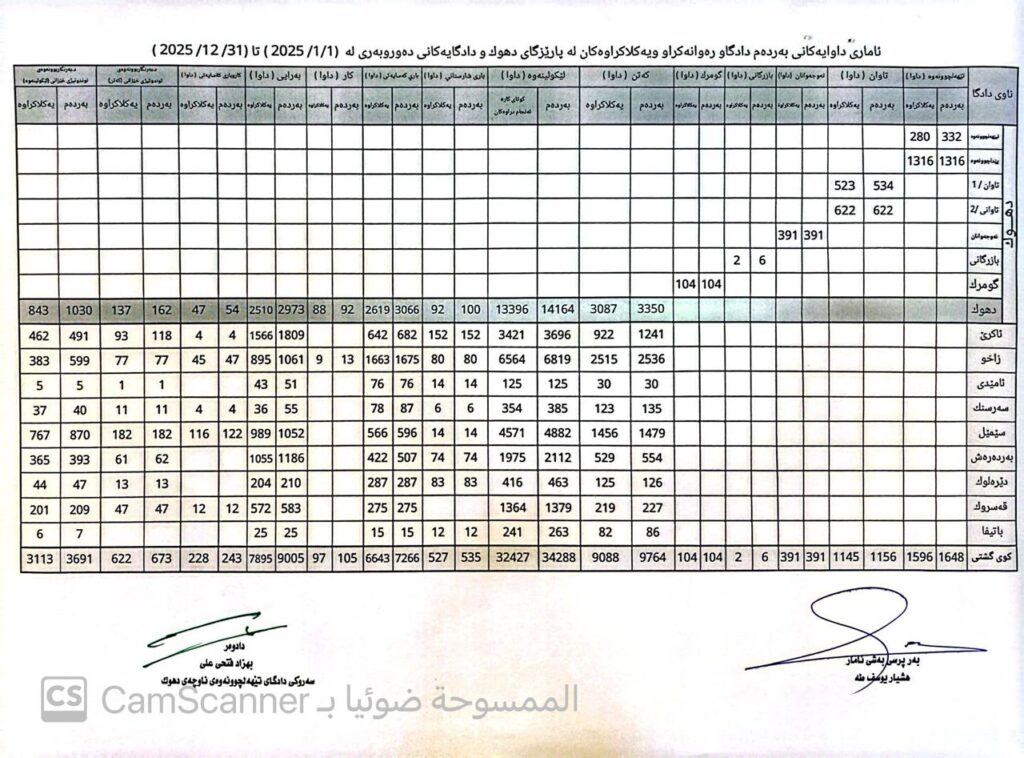 ئاماری داوایەکانی بەردەم دادگاو رەوانەکراو ویەکلاکراوەکان لە پارێزگای دهوك و دادگایەکانی دەوروبەری لە (1/1/ 2025 ) تا (31/ 12/ 2025 )
ناوی دادگا تێهەلچوونەوە (داوا) تاوان ( داوا ) نەوجەوانان (داوا) بازرگانی (داوا) گومرك (داوا) کەتن ( داوا ) لێکولینەوە ( داوا ) باری شارستانی (داوا) باری کەسایەتی (داوا) کار (داوا ) بەرایی (داوا)
بەردەم یەکلاکراوە بەردەم یەکلاکراوە بەردەم یەکلاکراوە بەردەم یەکلاکراوە بەردەم یەکلاکراوە بەردەم یەکلاکراوە بەردەم بەردەم یەکلاکراوە بەردەم یەکلاکراوە بەردەم یەکلاکراوە بەردەم یەکلاکراوە بەردەم یەکلاکراوە بەردەم یەکلاکراوە بەردەم یەکلاکراوە
دهوك
تێهەلچوونەوە 332 280
پێداچوونەوە 1316 1316
تاوان / 1 534 523
تاوانی /2 622 622
نەوجەوانان 391 391
بازرگانی 6 2
گومرك 104 104
دهوك 3350 3087 14164 13396 100 92 3066 2619 92 88 2973 2510 54 47 162 137 1030 843
ئاکرێ 1241 922 3696 3421 152 152 682 642 1809 1566 4 4 118 93 491 462
زاخو 2536 2515 6819 6564 80 80 1675 1663 13 9 1061 895 47 45 77 77 599 383
ئامێدی 30 30 125 125 14 14 76 76 51 43 1 1 5 5
سەرسنك 135 123 385 354 6 6 87 78 55 36 4 4 11 11 40 37
سێمێل 1479 1456 4882 4571 14 14 596 566 1052 989 122 116 182 182 870 767
بەردەرەش 554 529 2112 1975 74 74 507 422 1186 1055 62 61 393 365
دێرەلوك 126 125 463 416 83 83 287 287 210 204 13 13 47 44
قەسروك 227 219 1379 1364 275 275 583 572 12 12 47 47 209 201
باتیفا 86 82 263 241 12 12 15 15 25 25 7 6
کوی گشتی 1648 1596 1156 1145 391 391 6 2 104 104 9764 9088 34288 32427 535 527 7266 6643 105 97 9005 7895 243 228 673 622 3691 3113
بەر پرسی بەشی ئامار
هشیار یوسف طە
دادوەر
بهزاد فتحی علی
سەروکی دادگای تێهەلچوونەوەی ناوچەی دهوك
CS CamScanner الممسوحة ضوئيا بـ